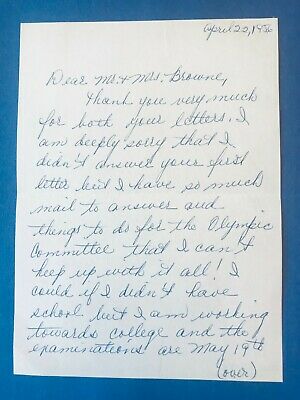 April 22, 1956
Dear Mr. + Mrs. Browne,
Thank you very much
for both your letters. I
am deeply sorry that I
didn't answered your first
letter but I have so much
mail to answer and
things to do for the Olympic
Committee that I can't
keep up with it all! I
could if I didn't have
school but I am working
towards college and the
examinations are May 19th
(over)